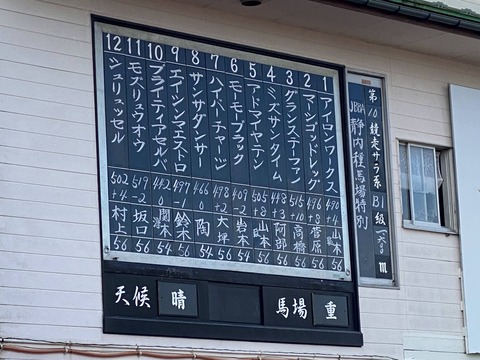 第10競走サラ系B1級 m
JBBA静内種馬場特別
1 アイロンワークス 490 -4 山本 56
2 マシゴッドレッグ 496 +8 菅原 56
3 グランステーファン 515 +10 高橋 56
4 ミズサンタイム 448 +3 阿部 56
5 アドマイヤテン 505 +8 山本 56
6 モーモーブラック 409 -2 岩本 54
7 ハイパーチャージ 498 +2 大坪 56
8 466 陶 54
9 エイシンマエストロ 497 -1 鈴木 56
10 ブライティアセルバ 442 関本 54
11 モズリュウオウ 519 -2 坂口 56
12 シュリュッセル 502 +4 村上 56
天候 晴
馬場 重